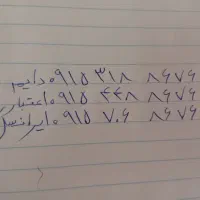 ۰۹۱۵ ۳۱۸ ۸۶۷۶ دایم
۰۹۱۵ ۴۴۸ ۸۶۷۶ اعتبار
۰۹۱۵ ۷۰۶ ۸۶۷۶ ایرانسل